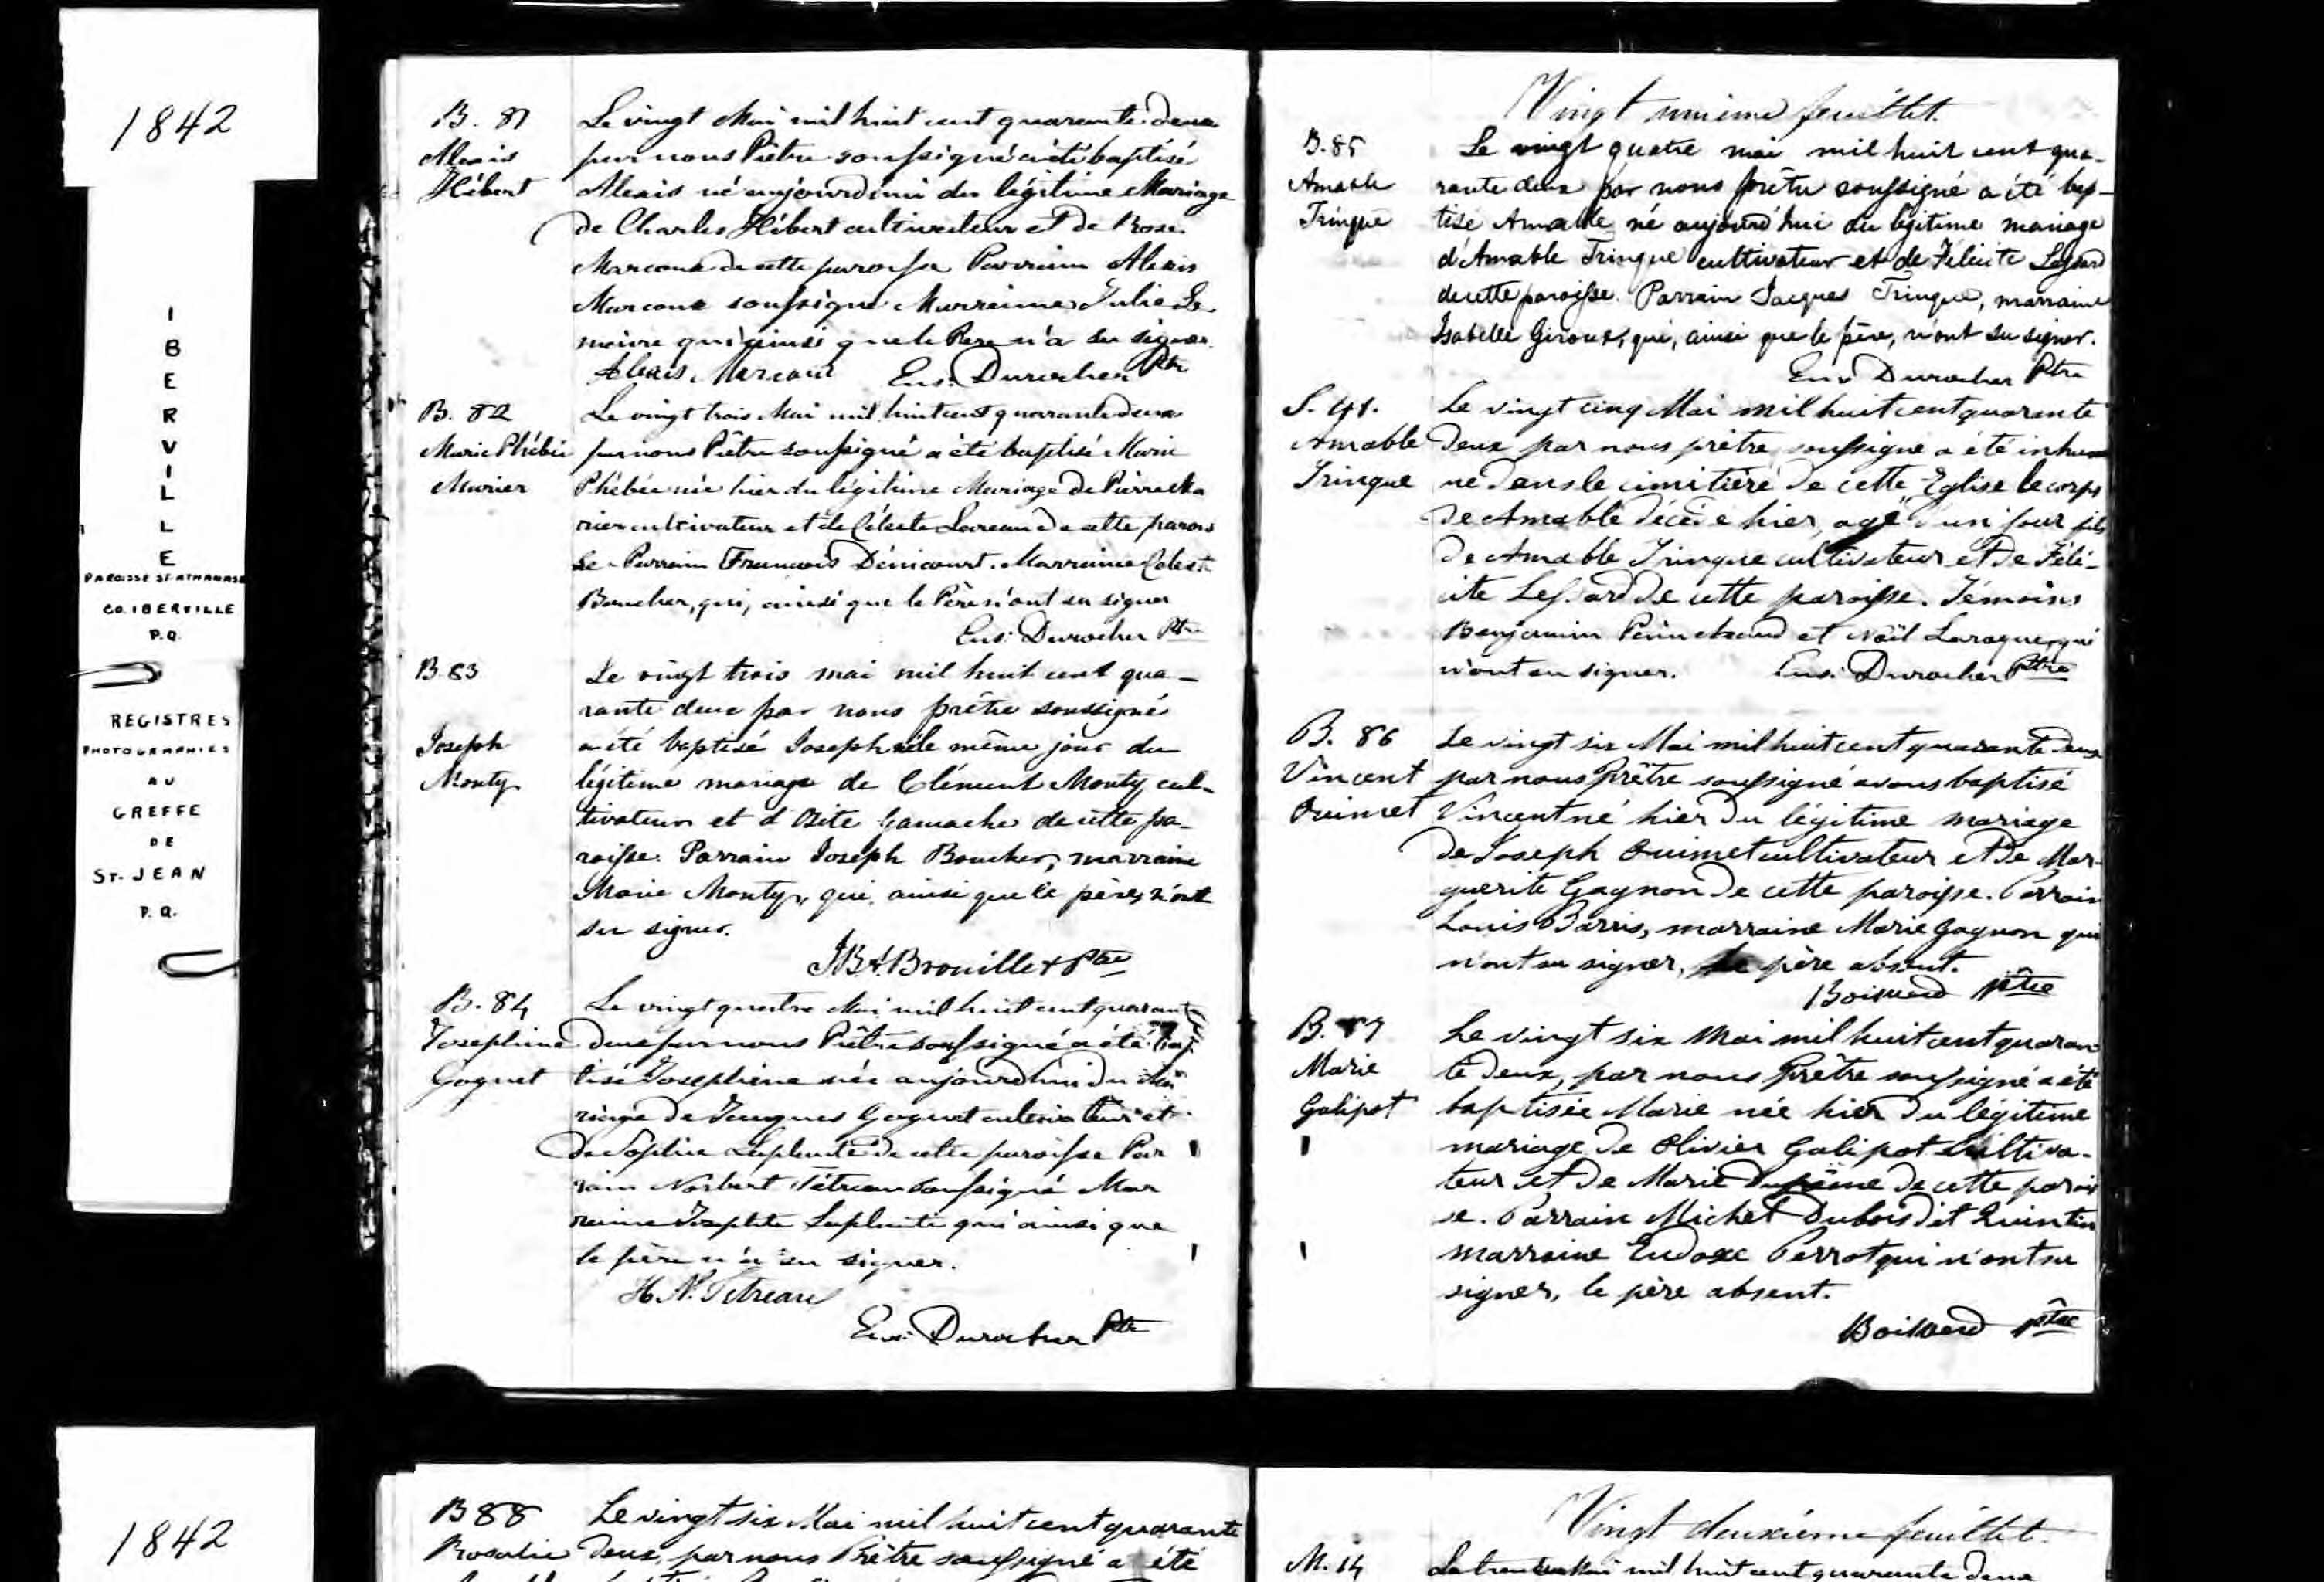 1842
IBERVILLE
PAROISSE ST-ATHANASE
CO. IBERVILLE
P.Q.
REGISTRES
PHOTOGRAPHIES
AU
GREFFE
DE
ST-JEAN
P.Q.
B. 81
Alexis
Hébert
Le vingt Mai mil huit cent quarante deux
par nous Prêtre soussigné a été baptisé
Alexis né aujourdhui du légitime Mariage
de Charles Hébert cultivateur et de Rose
Marcoux de cette paroisse Parrain Alexis
Marcoux soussigné Marraine Julie Le
maire qui ainsi que le Pere n'a su signer.
Alexis Marcoux Eus. Durocher Ptre
B. 82
Marie Phébée
Murier
Le vingt trois Mai mil huit cent quarante deux
par nous Prêtre soussigné a été baptisé Marie
Phébée née hier du légitime Mariage de Pierre Mu
rier cultivateur et de Céleste Lareau de cette parois
se. Parrain François Dénicourt. Marraine Celeste
Boucher, qui, ainsi que le Père n'ont su signer
Eus. Durocher Ptre
B. 83
Joseph
Monty
Le vingt trois mai mil huit cent qua-
rante deux par nous prêtre soussigné
a été baptisé Joseph né le même jour du
légitime mariage de Clément Monty cul-
tivateur et d'Osite Gamache de cette pa-
roisse. Parrain Joseph Boucher, marraine
Marie Monty, qui, ainsi que le père, n'ont
su signer.
J.B.A. Brouillet Ptre
B. 84
Josephine
Goguet
Le vingt quatre Mai mil huit cent quarante
deux par nous Prêtre soussigné a été bap
tisé Josephine née aujourdhui du Ma
riage de Jacques Goguet cultivateur et
de Sophie Laplante de cette paroisse Par
rain Norbert Tétreau soussigné Mar
raine Josephte Laplante qui ainsi que
le père n'a su signer.
H. N. Tetreau
Eus. Durocher Ptre
Vingt unieme feuillet.
B. 85
Amable
Trinque
Le vingt quatre mai mil huit cent qua-
rante deux par nous prêtre soussigné a été bap-
tisé Amable né aujourd'hui du légitime mariage
d'Amable Trinque cultivateur et de Félicité Lessard
de cette paroisse. Parrain Jacques Trinque, marraine
Isabelle Giroux, qui, ainsi que le père, n'ont su signer.
Eus. Durocher Ptre
S. 41.
Amable
Trinque
Le vingt cinq Mai mil huit cent quarante
deux par nous prêtre soussigné a été inhu
mé dans le cimitière de cette Eglise le corps
de Amable décédé hier, agé d'un jour fils
de Amable Trinque cultivateur et de Féli-
cité Lessard de cette paroisse. Témoins
Benjamin et Noël Laroque, qui
n'ont su signer. Eus. Durocher Ptre
B. 86
Vincent
Ouimet
Le vingt six Mai mil huit cent quarante deux
par nous Prêtre soussigné avons baptisé
Vincent né hier du légitime mariage
de Joseph Ouimet cultivateur et de Mar-
guerite Gagnon de cette paroisse. Parrain
Louis Barris, marraine Marie Gagnon qui
n'ont su signer, le père absent.
Boisverd ptre
B. 87
Marie
Galipot
Le vingt six Mai mil huit cent quaran
te deux, par nous Prêtre soussigné a été
baptisée Marie née hier du légitime
mariage de Olivier Galipot cultiva-
teur et de Marie de cette parois
se. Parrain Michel Dubois dit Quintin
marraine Eudoxe Perrot qui n'ont su
signer, le père absent.
Boisverd ptre
1842
B 88
Rosalie
Le vingt six Mai mil huit cent quarante
deux, par nous Prêtre soussigné a été
Vingt deuxième feuillet.
M. 14
Mai mil huit cent quarante deux